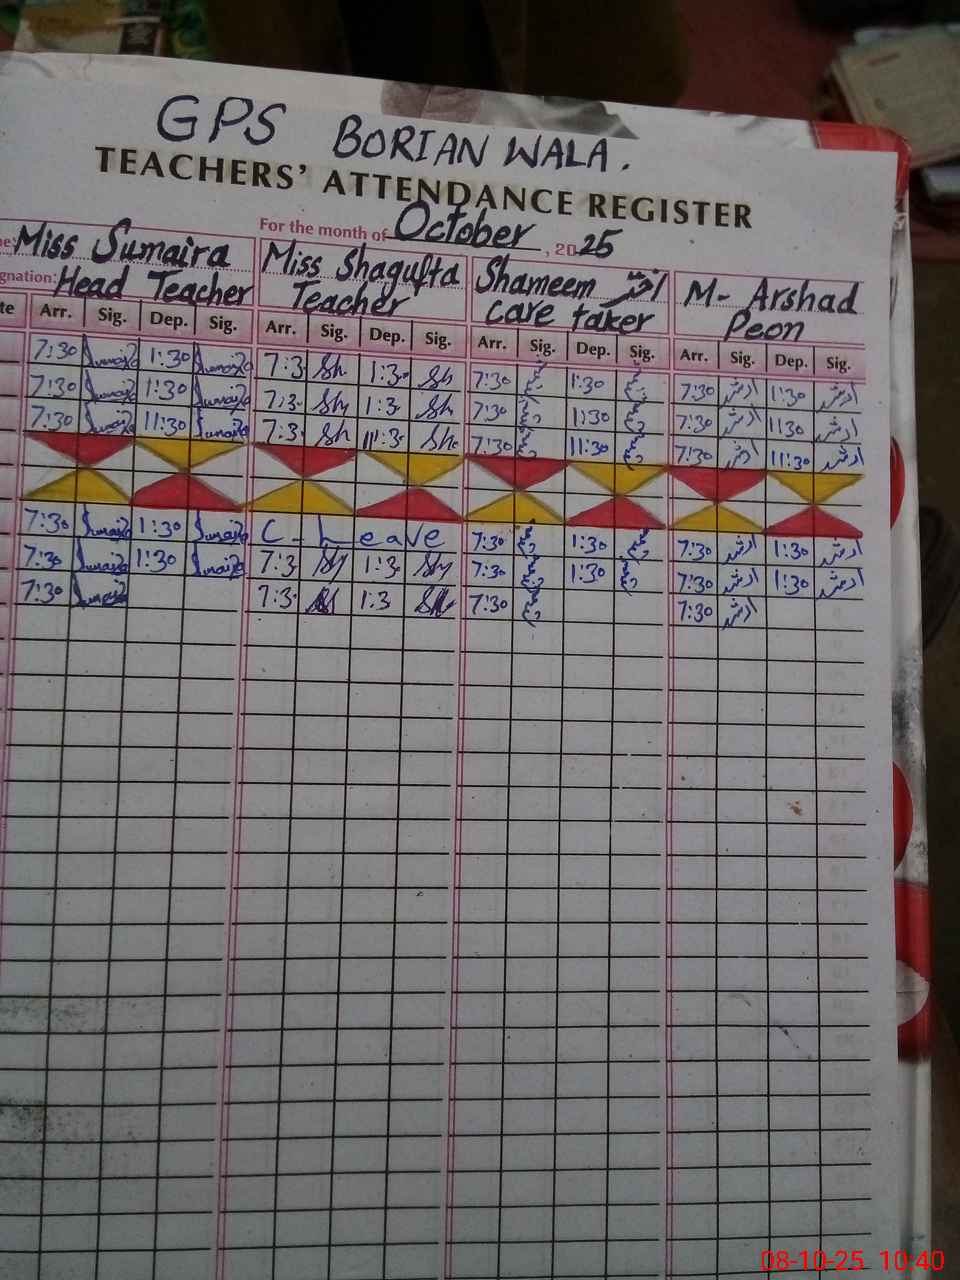 GPS BORIAN WALA.
TEACHERS' ATTENDANCE REGISTER
For the month of October, 2025
Miss Sumaira Miss Shagufta Shameem اختر M- Arshad
gnation: Head Teacher Teacher care taker Peon
te Arr. Sig. Dep. Sig. Arr. Sig. Dep. Sig. Arr. Sig. Dep. Sig. Arr. Sig. Dep. Sig.
7:30 Sumaira 1:30 Sumaira 7:3 Sh 1:30 Sh 7:30 1:30 7:30 ارشد 1:30 ارشد
7:30 Sumaira 1:30 Sumaira 7:3 Sh 1:3 Sh 7:30 1:30 7:30 ارشد 1:30 ارشد
7:30 Sumaira 11:30 Sumaira 7:3 Sh 11:3 Sh 7:30 11:30 7:30 ارشد 11:30 ارشد
7:30 Sumaira 1:30 Sumaira C-Leave 7:30 1:30 7:30 ارشد 1:30 ارشد
7:30 Sumaira 1:30 Sumaira 7:3 Sh 1:3 Sh 7:30 1:30 7:30 ارشد 1:30 ارشد
7:30 Sumaira 7:3 Sh 1:3 Sh 7:30 7:30 ارشد
08-10-25 10:40